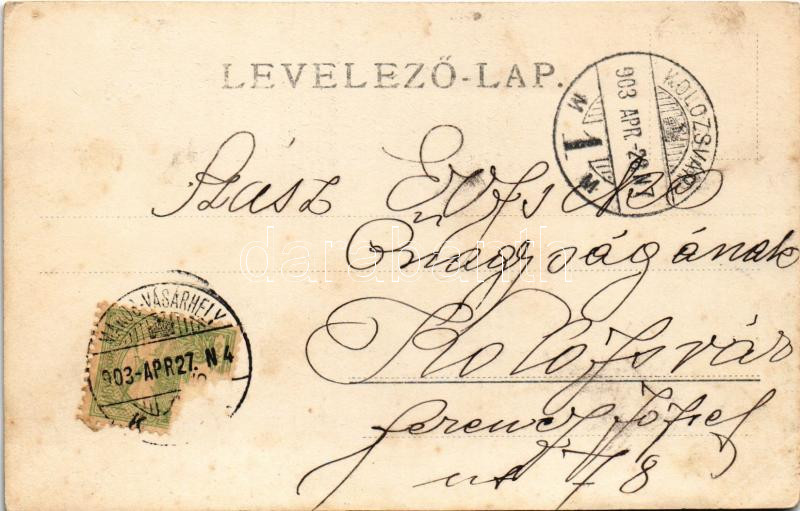 LEVELEZŐ-LAP.
KOLOZSVÁR
903 APR.-28. N7
M 1 M
Szász Erzsike
Őnagyságának
Kolozsvár
Ferencz József
ut 78
MAROS-VÁSÁRHELY
903-APR 27. N 4
darabanth